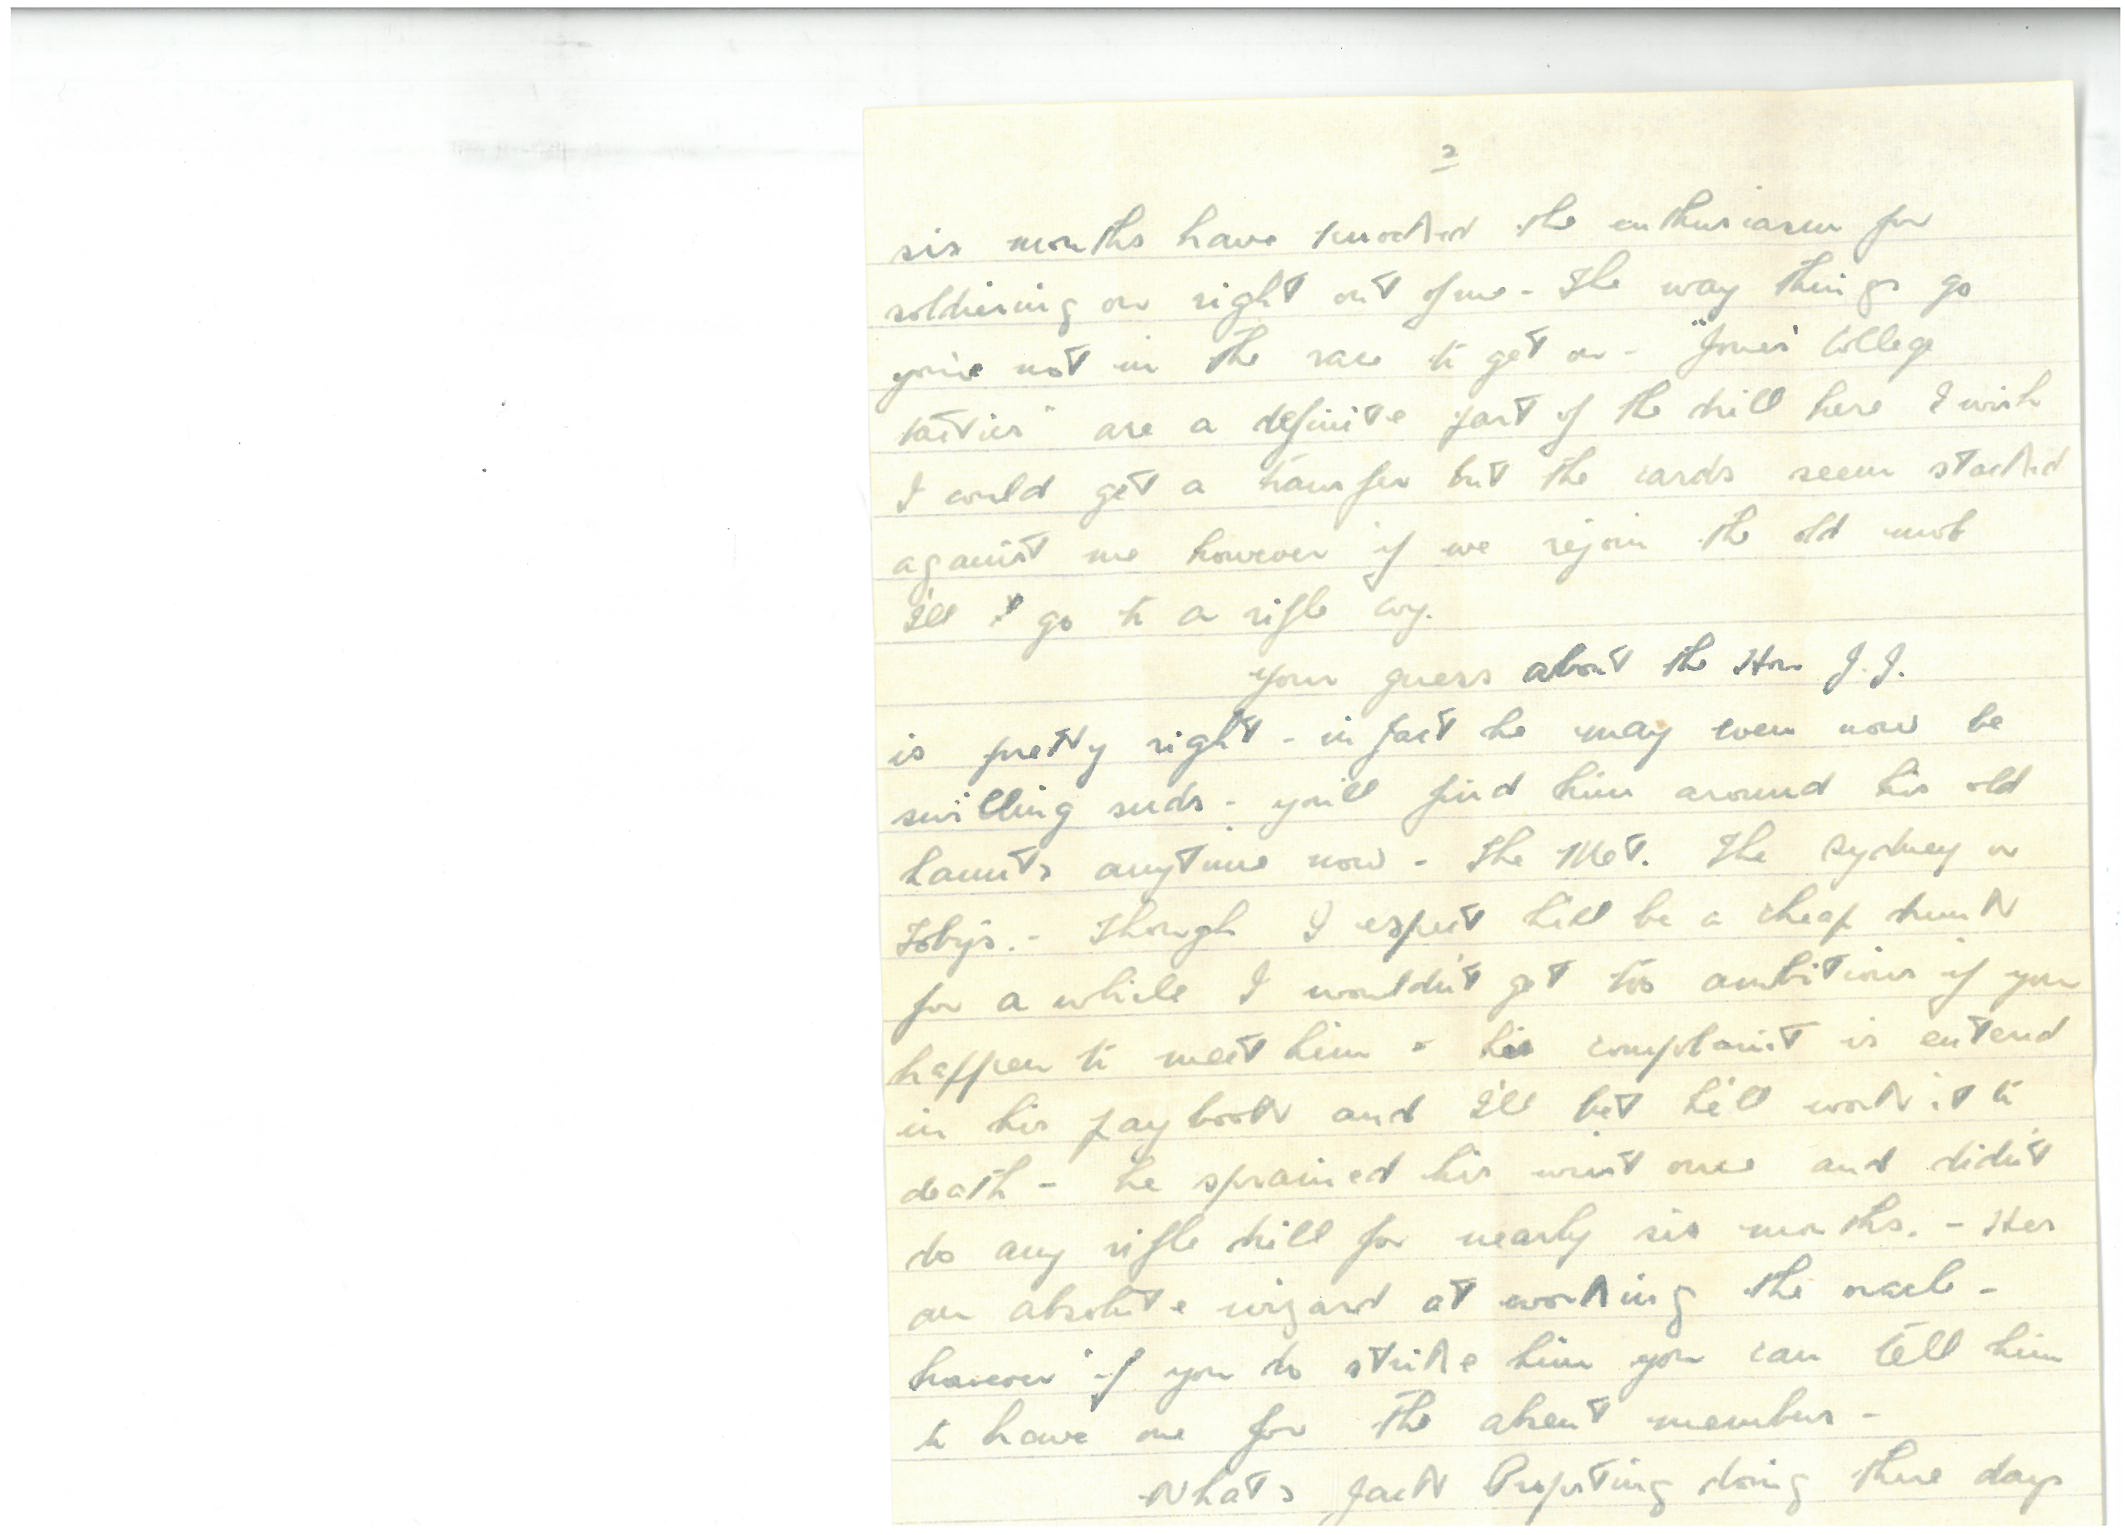 2
six months have knocked the enthusiasm for
soldiering on right out of me - The way things go
you're not in the race to get on - "Jones' College
tactics" are a definite part of the drill here I wish
I could get a transfer but the cards seem stacked
against me however if we rejoin the old mob
I'll go to a rifle coy.
Your guess about the Hon J.J.
is pretty right - in fact he may even now be
swilling suds - you'll find him around his old
haunts anytime now - The Met. The Sydney or
Toby's. - Though I expect he'll be a cheap drunk
for a while I wouldn't get too ambitious if you
happen to meet him - his complaint is entered
in his paybook and I'll bet he'll work it to
death - he sprained his wrist once and didn't
do any rifle drill for nearly six months. - Hes
an absolute wizard at working the oracle -
however if you do strike him you can tell him
to have one for the absent members -
Whats Jack doing these days